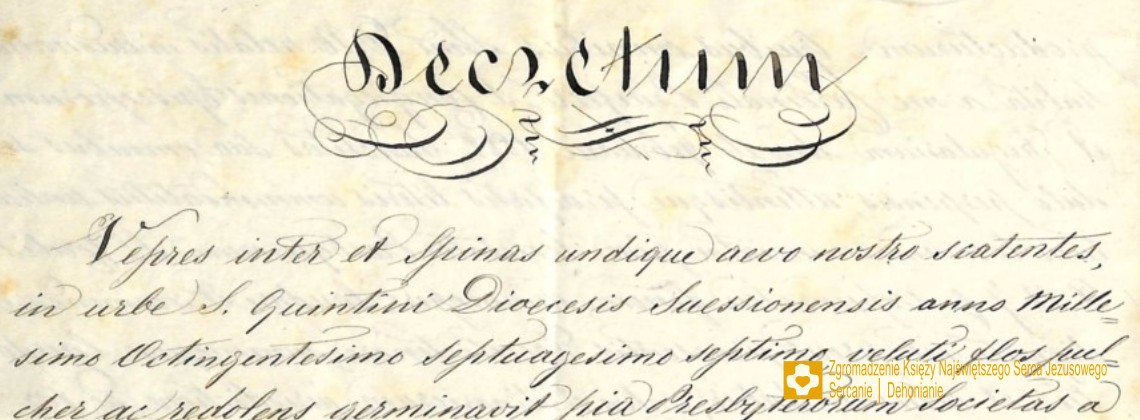 Decretum
Vepres inter et Spinas undique aevo nostro scatentes,
in urbe S. Quintini Dioecesis Suessionensis anno Mille=
simo Octingentesimo septuagesimo septimo veluti flos pul=
cher ac redolens germinavit pia Presbyterorum Societas a
Zgromadzenie Księży Najświętszego Serca Jezusowego
Sercanie | Dehonianie